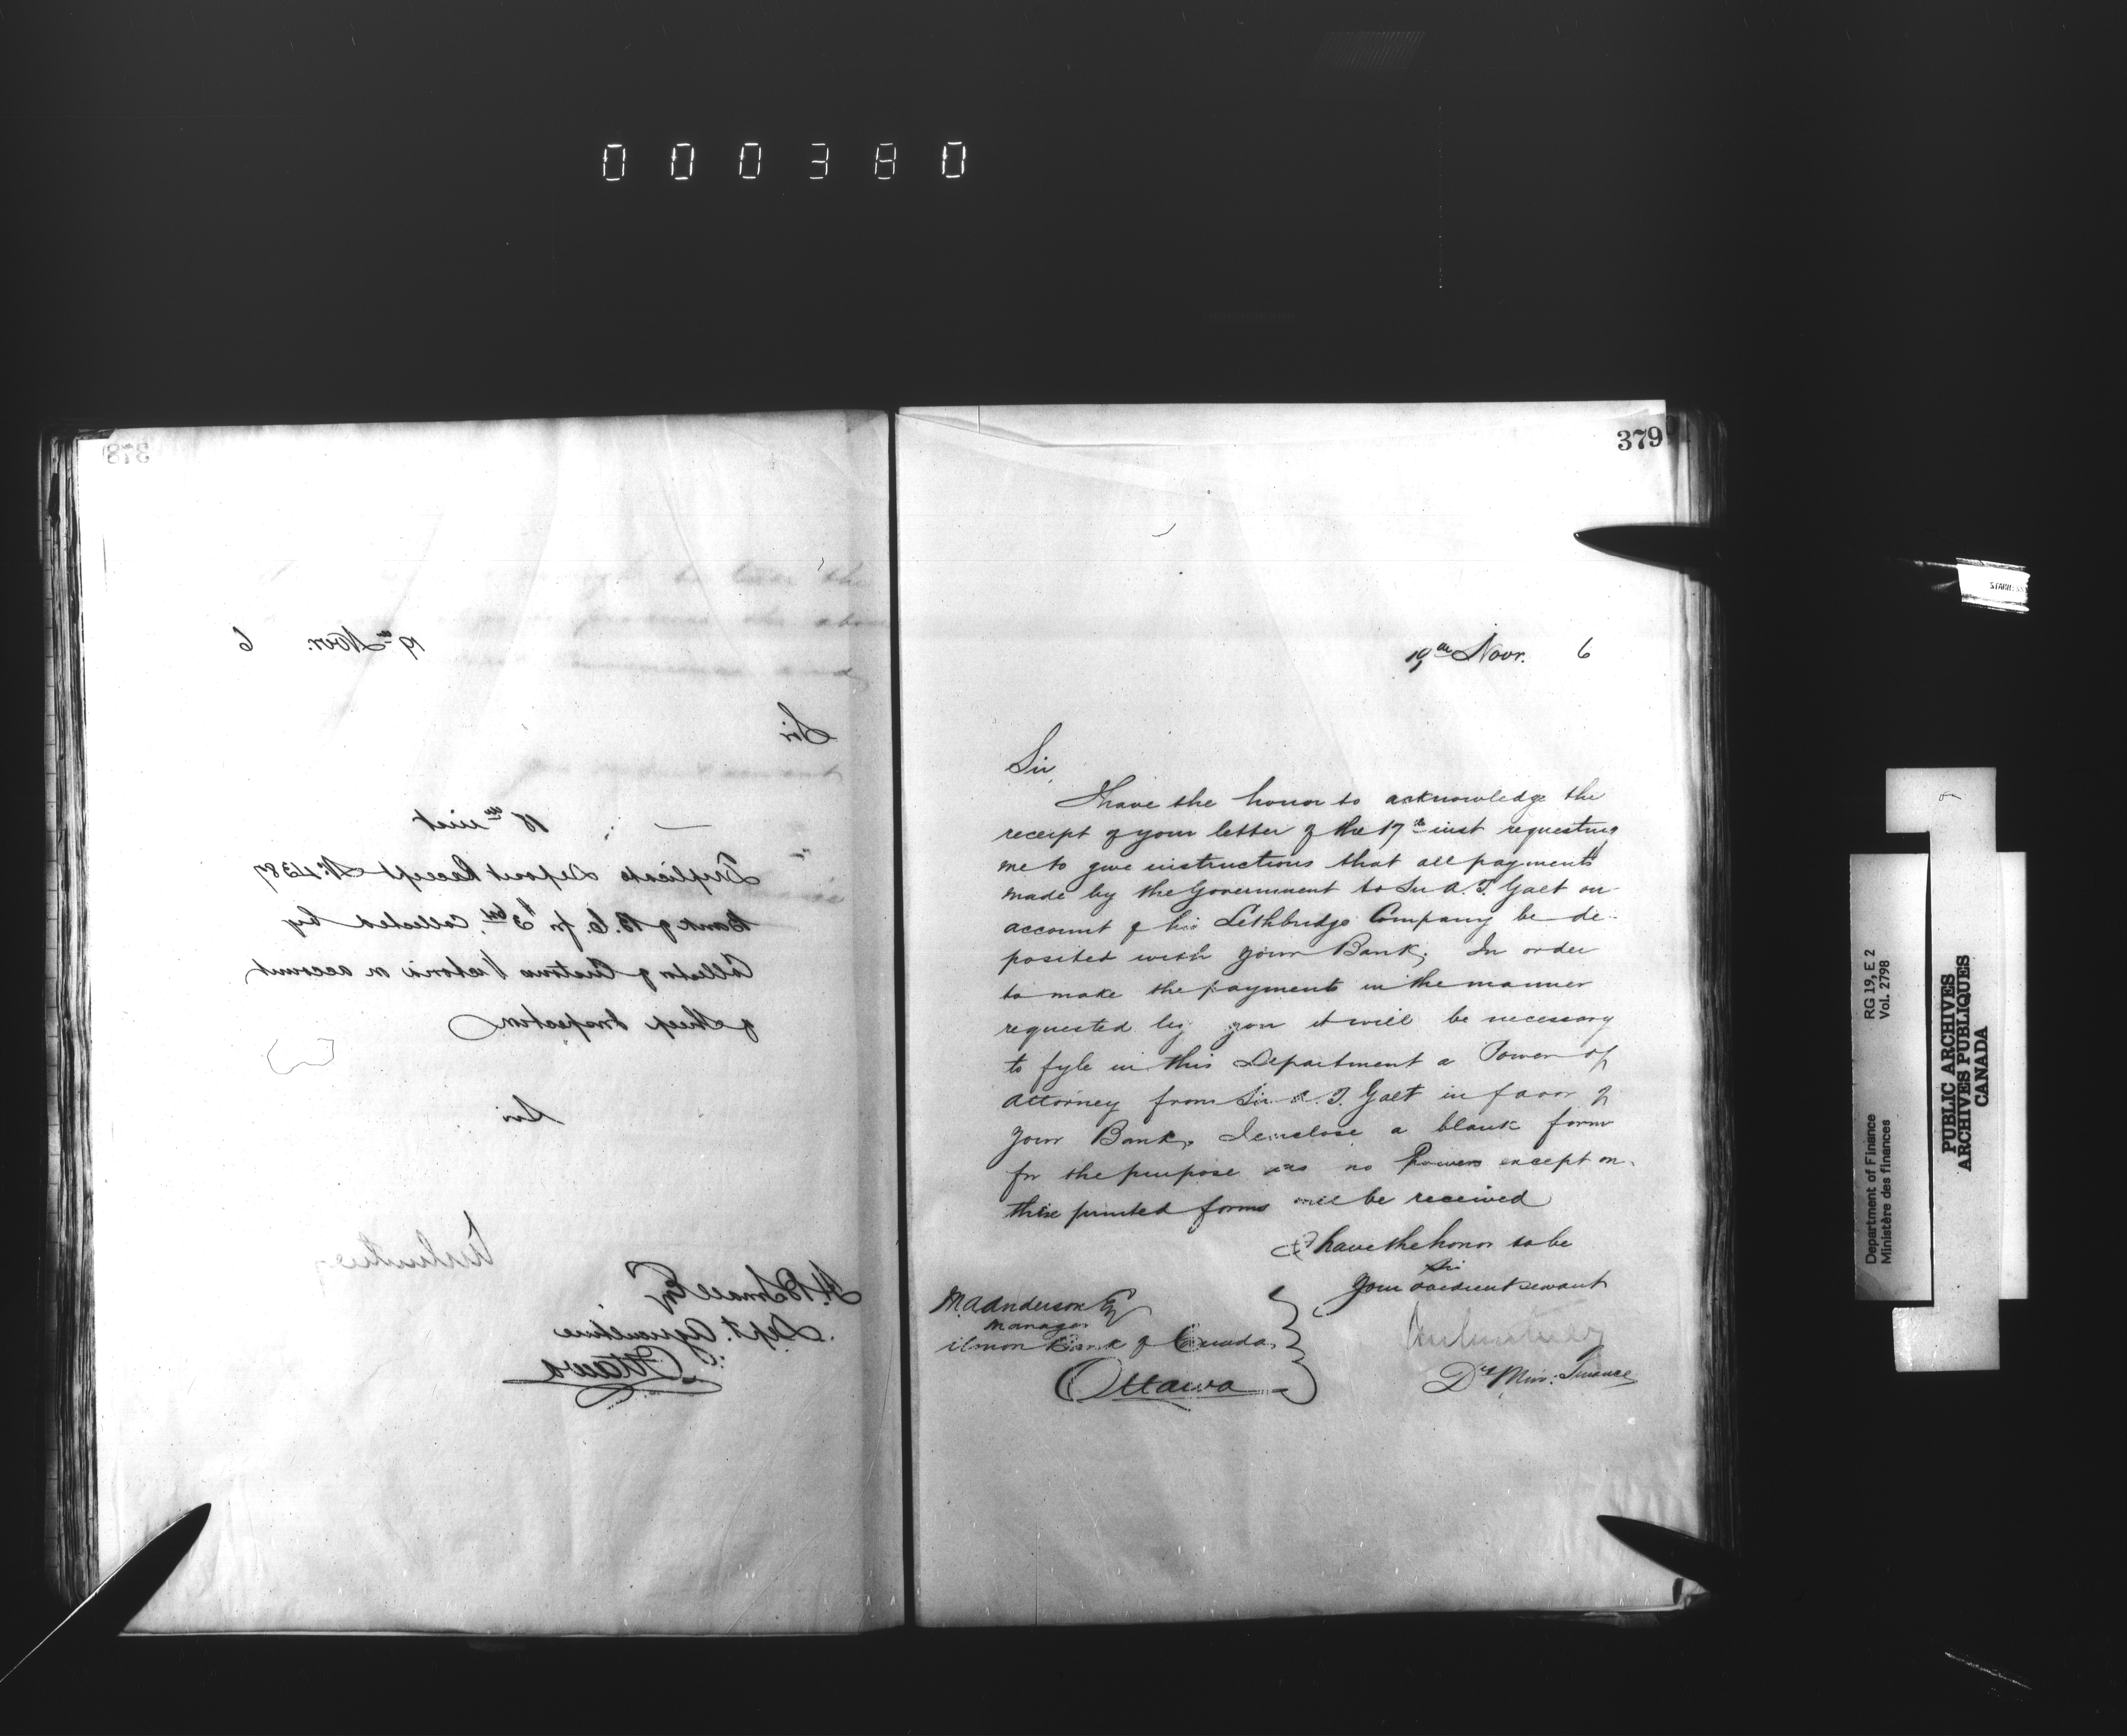 000380
378
19th Novr. 6
Sir
18th inst
Duplicate Deposit Receipt No. 4387
Bank of B.C. for $3 collected by
Collector of Customs Victoria on account
of Sheep Inspection
Sir
H. B. Small Esq
Dept. Agriculture
Ottawa
379
19th Novr. 6
Sir,
I have the honor to acknowledge the
receipt of your letter of the 17th inst requesting
me to give instructions that all payments
made by the Government to Sir A. T. Galt on
account of his Lethbridge Company be de-
posited with your Bank. In order
to make the payments in the manner
requested by you it will be necessary
to fyle in this Department a Power of
Attorney from Sir A. T. Galt in favor of
your Bank. I enclose a blank form
for the purpose as no Powers except on
these printed forms will be received
I have the honor to be
Sir
Your obedient servant
Dy Min: Finance
M. A. Anderson Esq
Manager
Union Bank of Canada
Ottawa
STAINLESS
Department of Finance RG 19, E 2
Ministère des finances Vol. 2798
PUBLIC ARCHIVES
ARCHIVES PUBLIQUES
CANADA